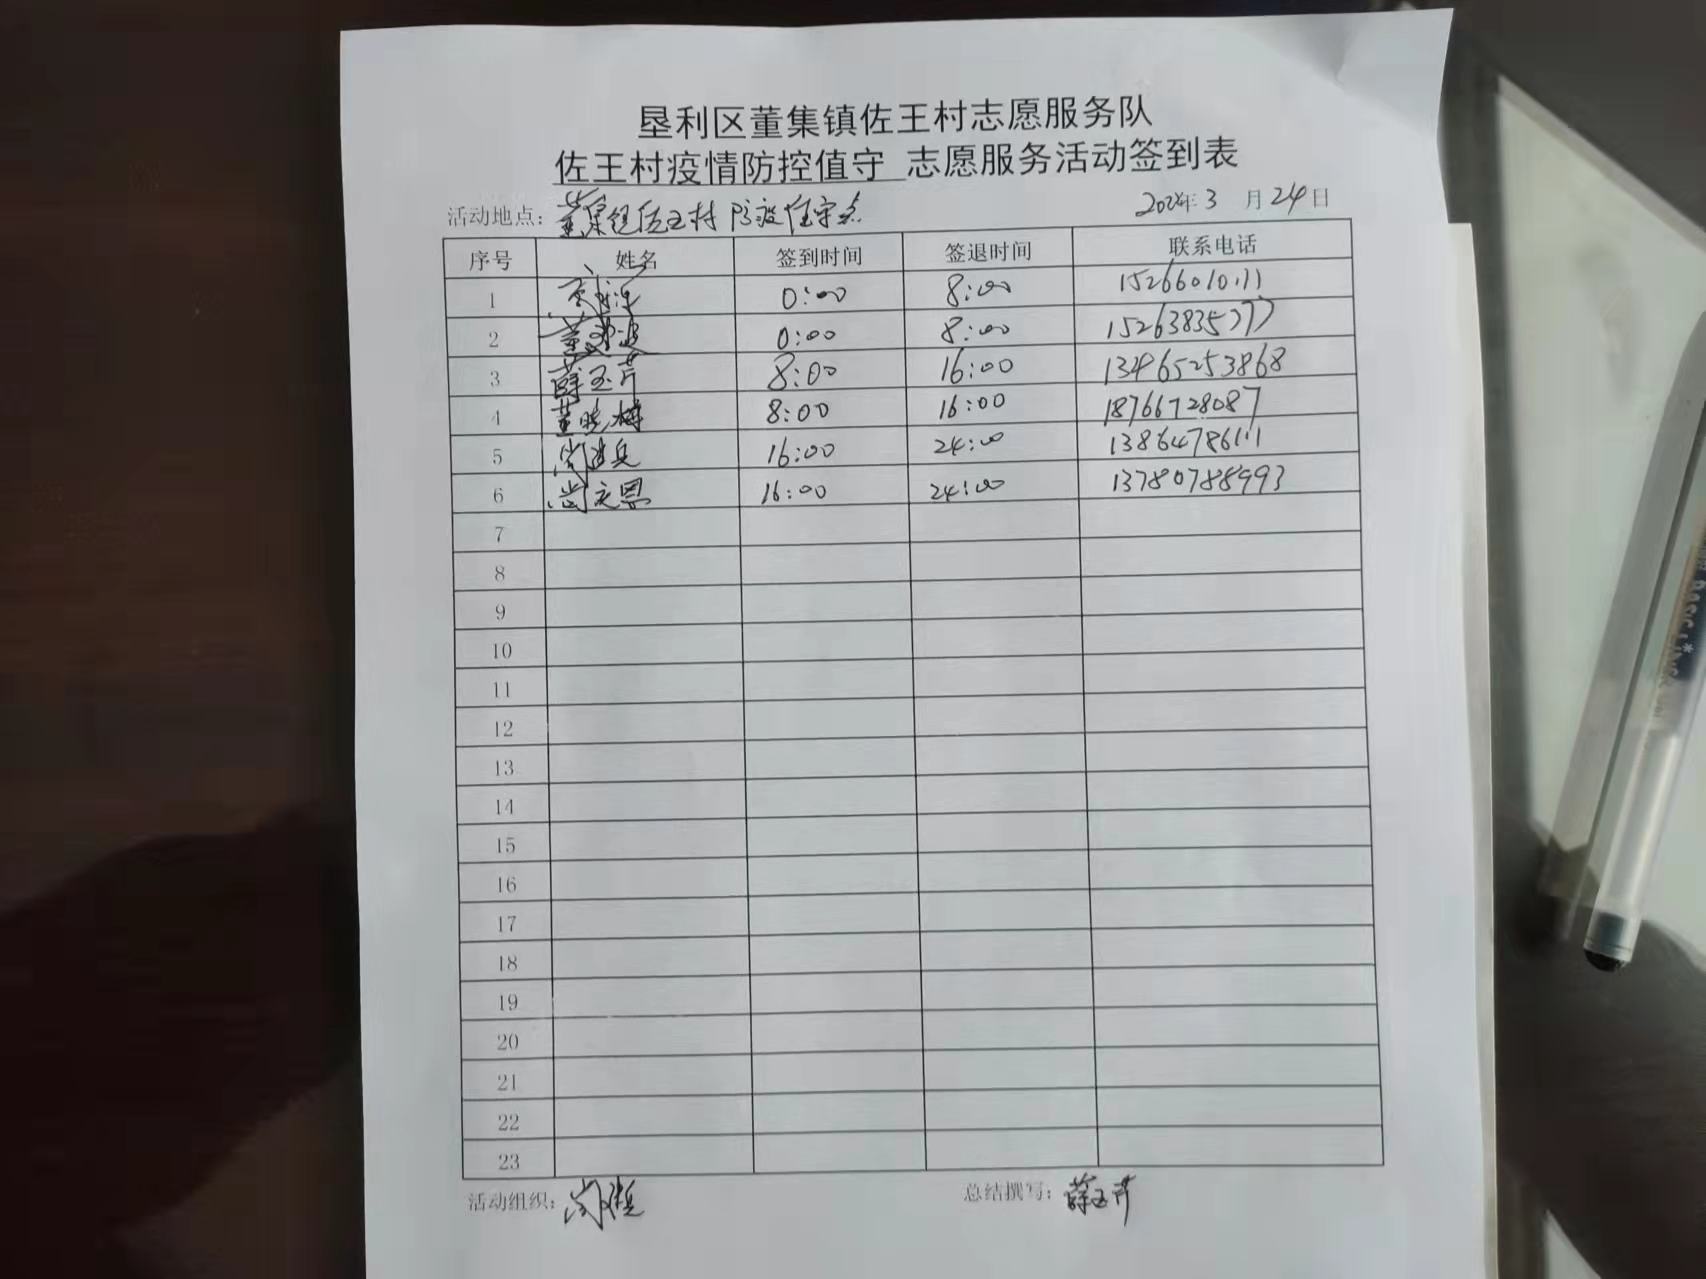 垦利区董集镇佐王村志愿服务队
佐王村疫情防控值守 志愿服务活动签到表
活动地点：董集镇佐王村防疫值守点 年3月24日
序号 姓名 签到时间 签退时间 联系电话
1 0:00 8:00
2 0:00 8:00
3 薛玉芹 8:00 16:00 13465253868
4 董晓梅 8:00 16:00 18766728087
5 尚建兵 16:00 24:00
6 尚立恩 16:00 24:00 13780788993
7
8
9
10
11
12
13
14
15
16
17
18
19
20
21
22
23
活动组织： 尚建兵 总结撰写：薛玉芹